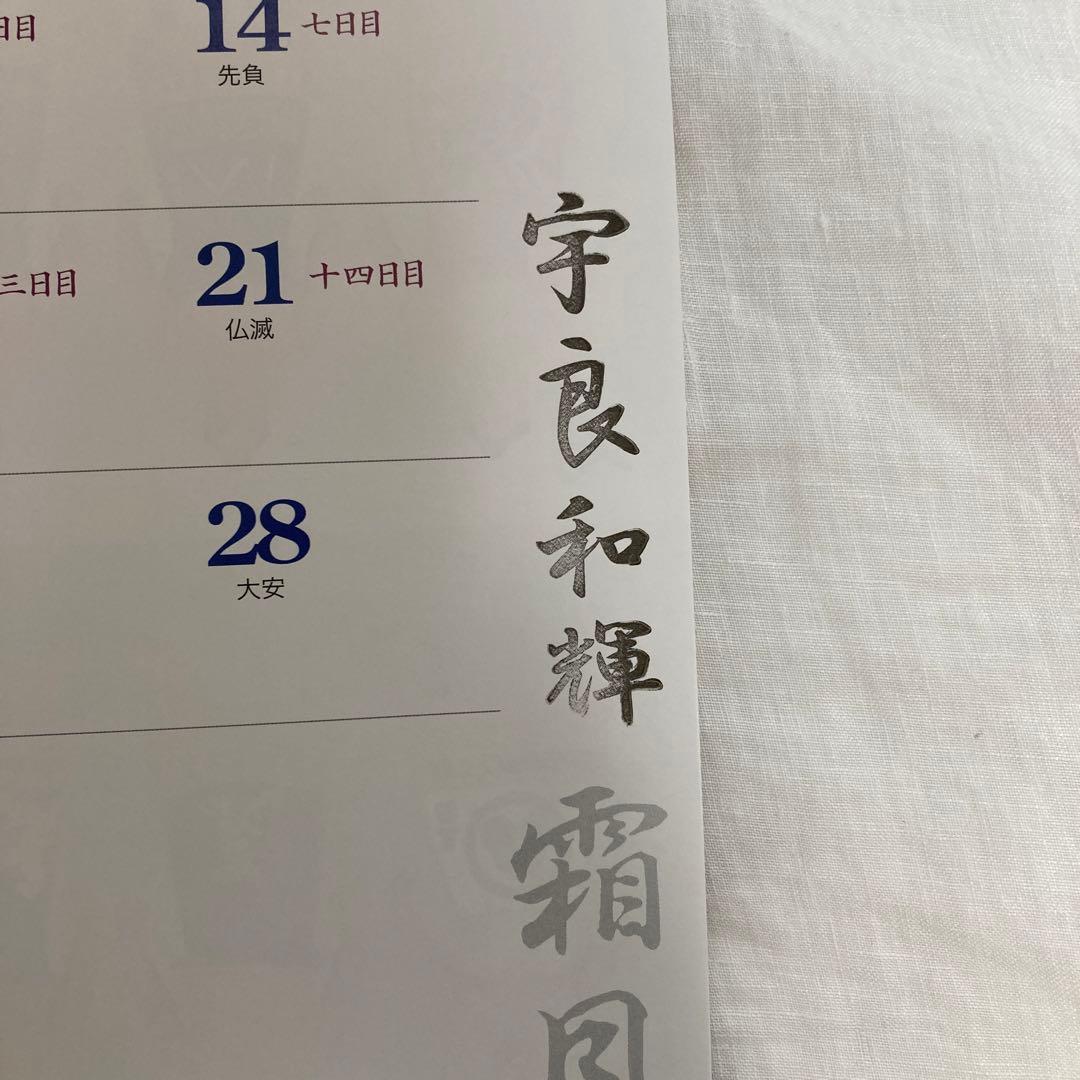 日目
14 七日目
先負
三日目
21 十四日目
仏滅
28
大安
宇良和輝
霜月